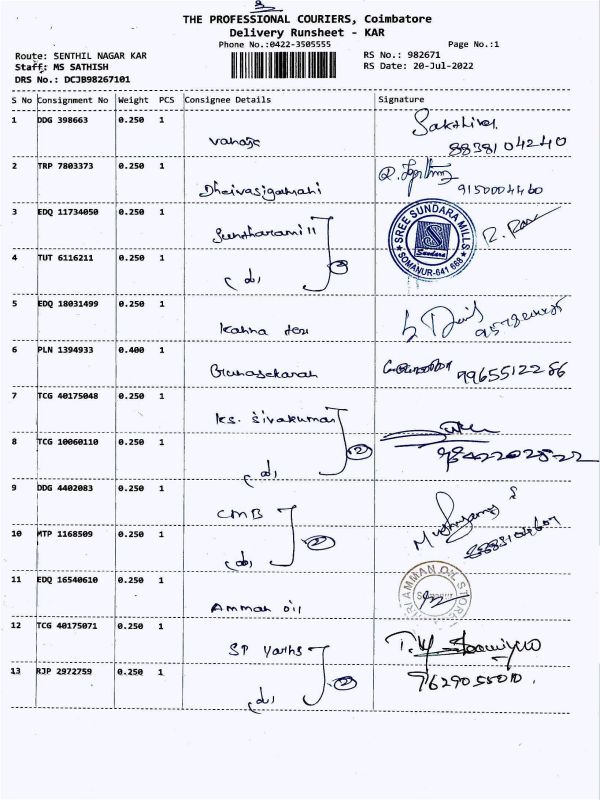 THE PROFESSIONAL COURIERS, Coimbatore
Delivery Runsheet - KAR
Phone No.:0422-3505555
Page No.:1
Route: SENTHIL NAGAR KAR
Staff: MS SATHISH
DRS No.: DCJB98267101
RS No.: 982671
RS Date: 20-Jul-2022
S No Consignment No Weight PCS Consignee Details Signature
1 DDG 398663 0.250 1
Sakthivel
8838104240
2 TRP 7803373 0.250 1
Dheivasigamani
9150004460
3 EDQ 11734050 0.250 1
SREE SUNDARA MILLS
Sundara
SOMANUR-641 668
4 TUT 6116211 0.250 1
2
5 EDQ 18031499 0.250 1
6 PLN 1394933 0.400 1
Gunasekaran
9965512286
7 TCG 40175048 0.250 1
ks. Sivakumar
8 TCG 10060110 0.250 1
2
9 DDG 4402083 0.250 1
CMB
10 MTP 1168509 0.250 1
2
11 EDQ 16540610 0.250 1
Amman oil
AMMAN OIL STORE
12 TCG 40175071 0.250 1
SP Yarns
13 RJP 2972759 0.250 1
2